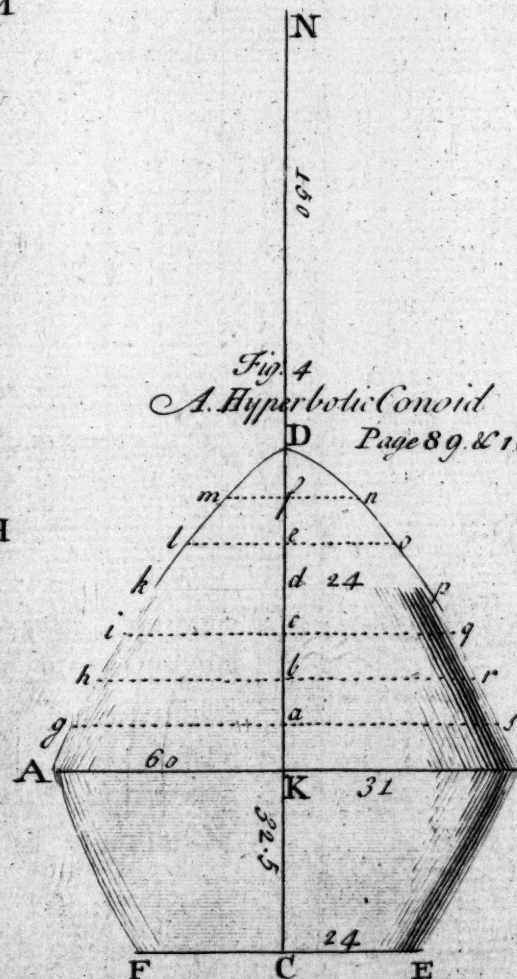 N
150
Fig. 4
A. Hyperbolic Conoid
Page 89. &
D
m f n
l e o
k d 24 p
i c q
h b r
g a s
A 60 K 31
32.5
24
F C E